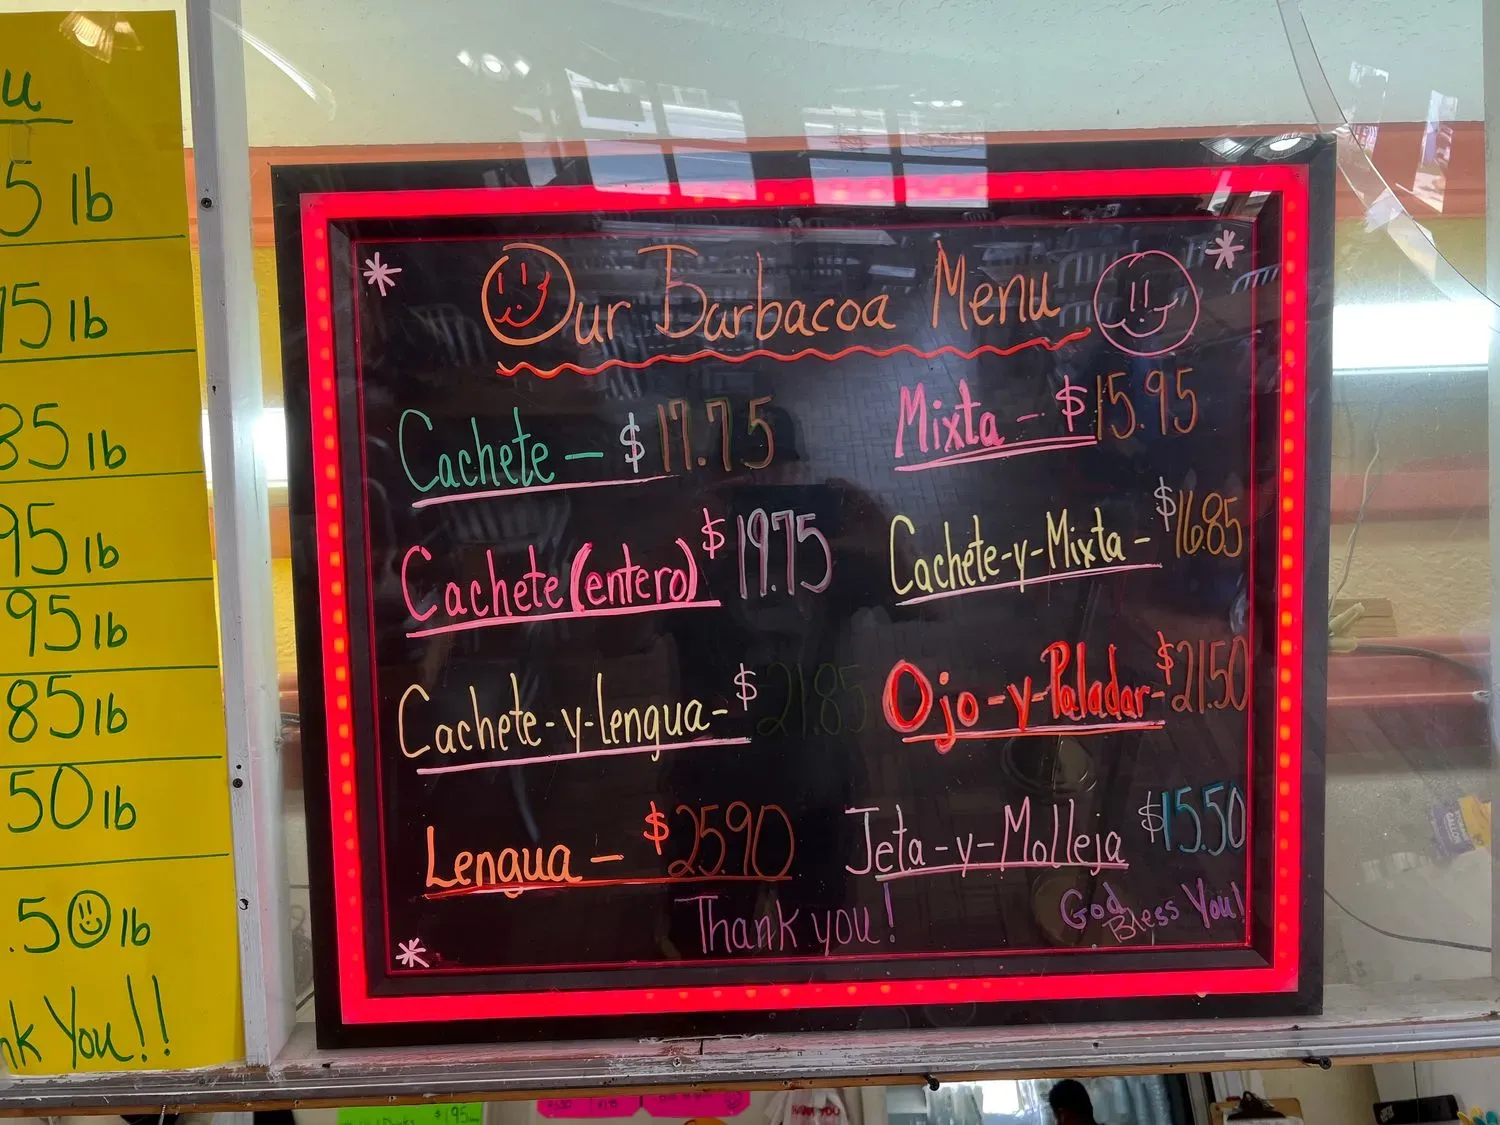 u
5 lb
75 lb
85 lb
95 lb
95 lb
85 lb
50 lb
.50 lb
nk You!!
Our Barbacoa Menu
Cachete - $17.75
Cachete (entero) $19.75
Cachete-y-lengua- $21.85
Lengua - $25.90
Mixta - $15.95
Cachete-y-Mixta - $16.85
Ojo-y-Paladar- $21.50
Jeta-y-Molleja $15.50
Thank you!
God Bless You!
$1.95